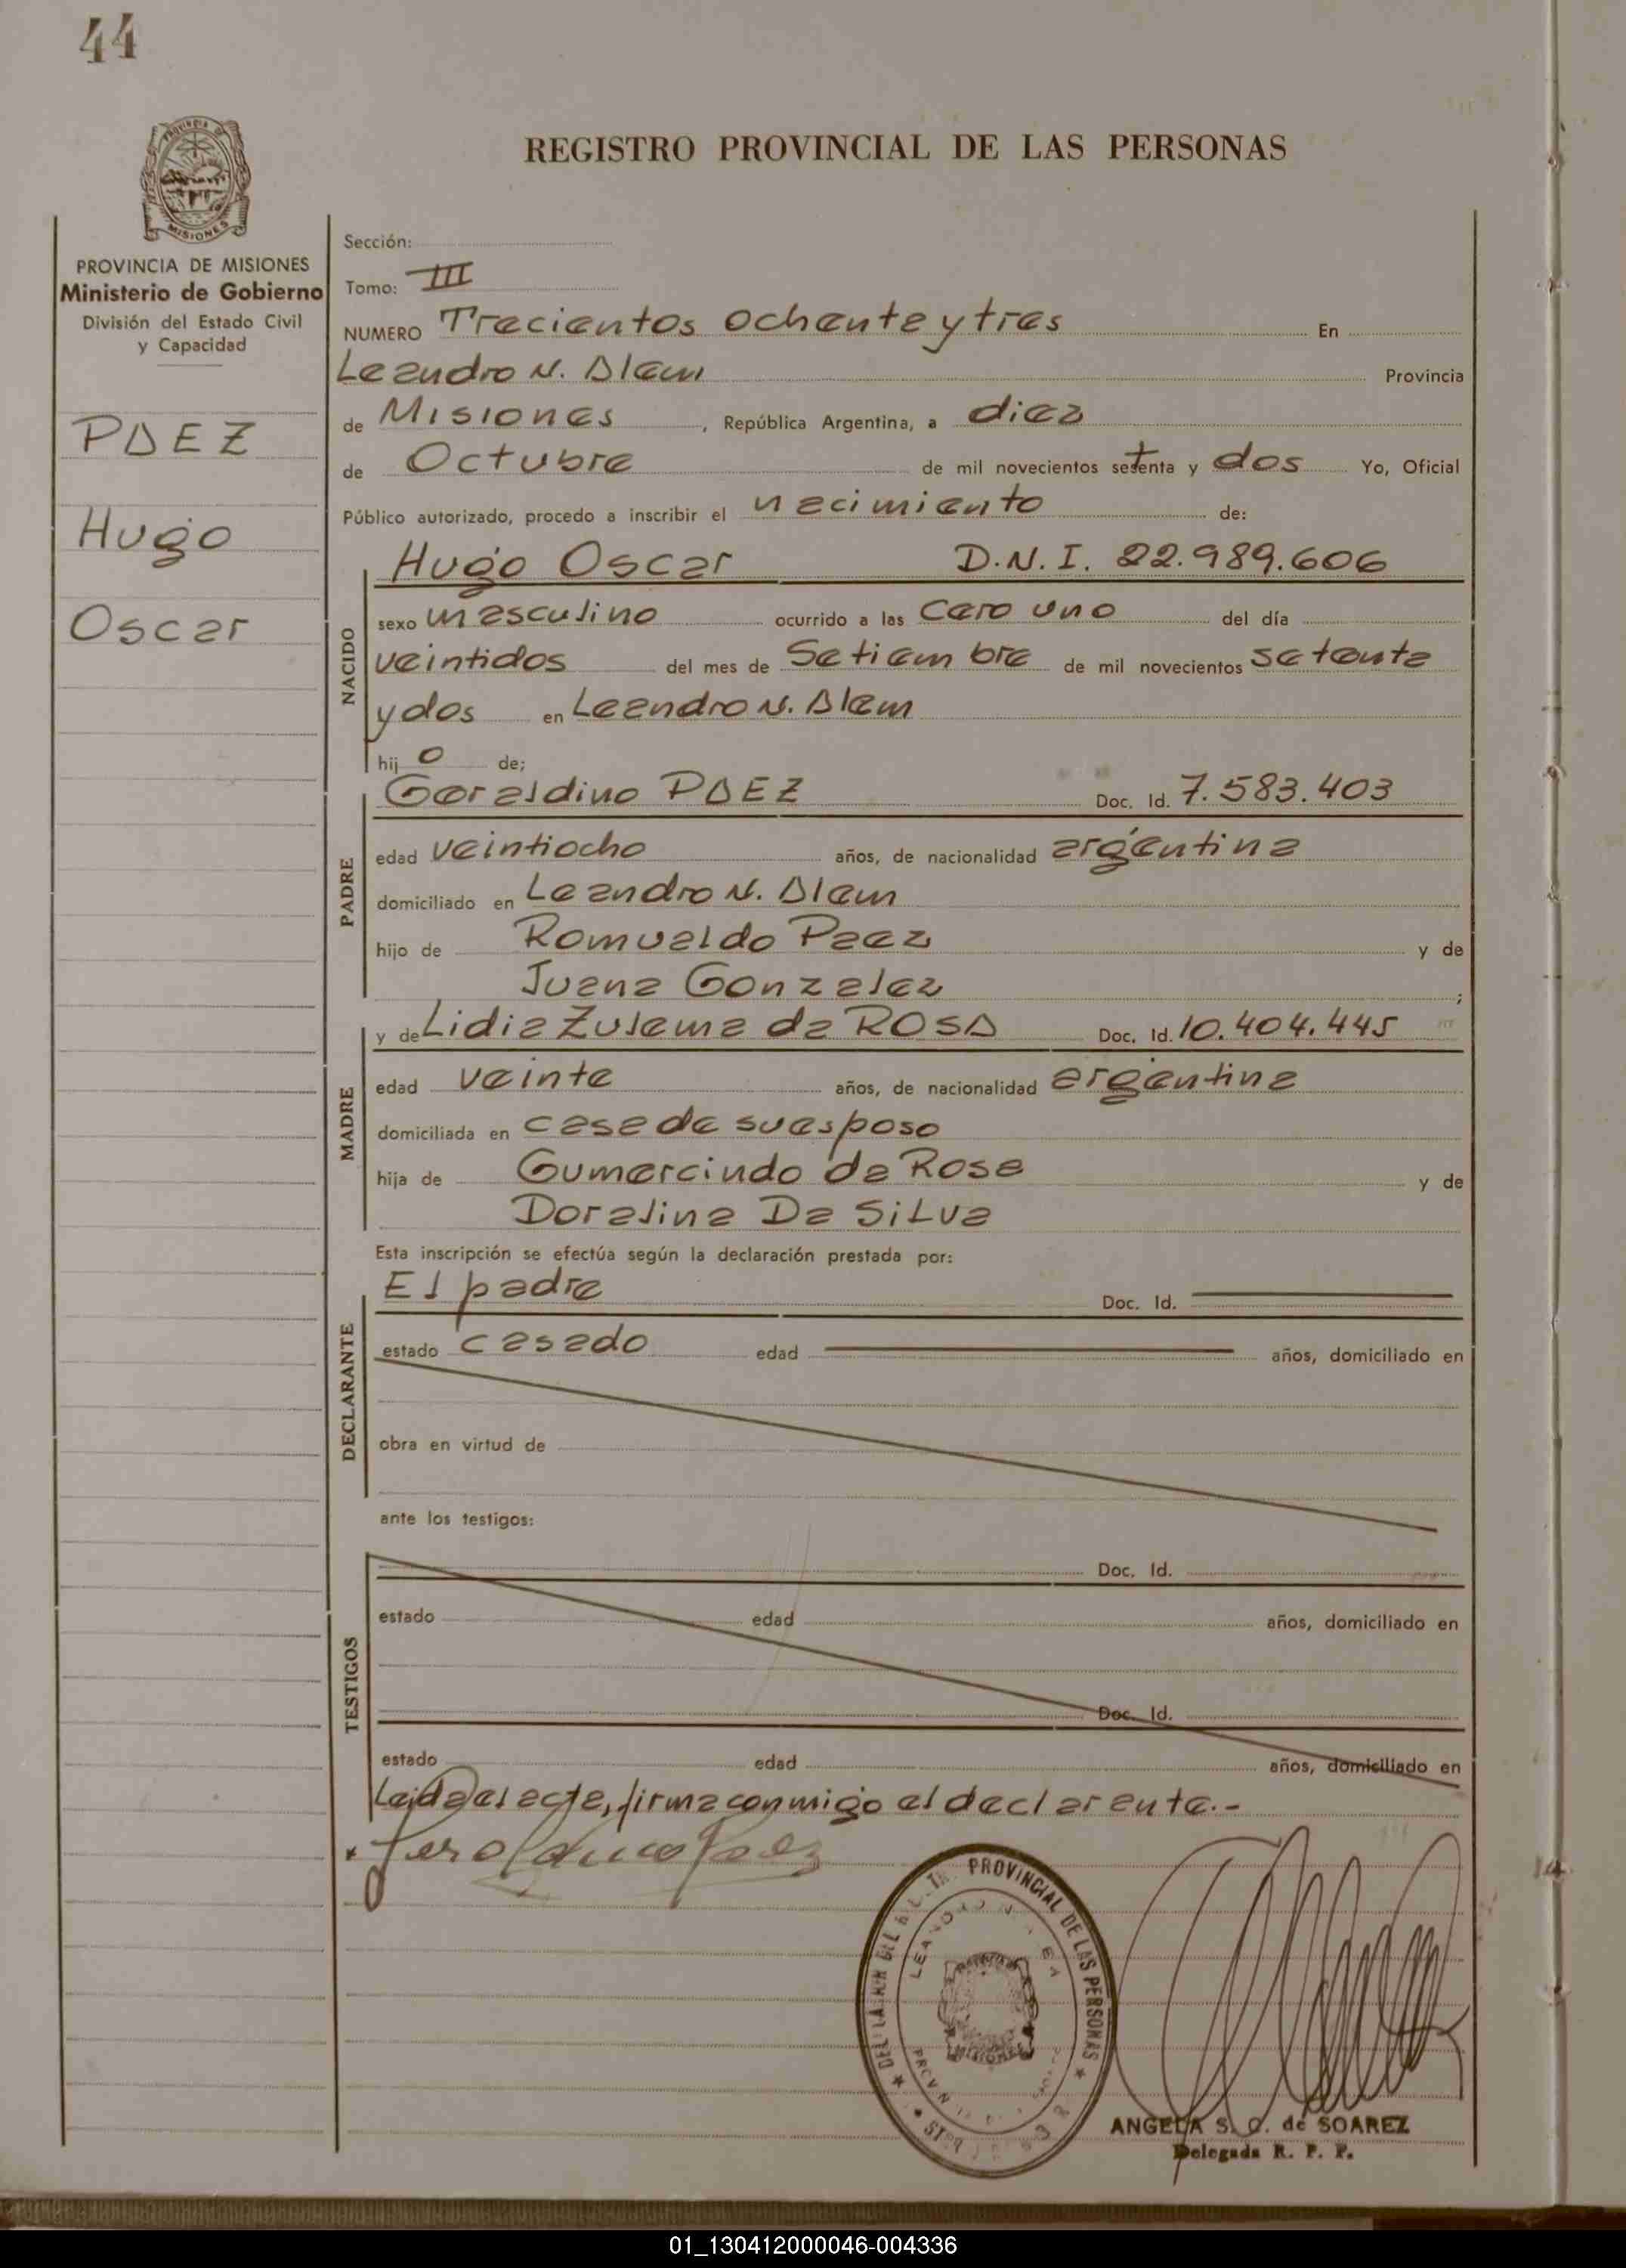 44
PROVINCIA DE
MISIONES
REGISTRO PROVINCIAL DE LAS PERSONAS
PROVINCIA DE MISIONES
Ministerio de Gobierno
División del Estado Civil
y Capacidad
PAEZ
Hugo
Oscar
Sección:
Tomo: III
NUMERO Trecientos ochenta y tres En
Leandro N. Alem Provincia
de Misiones, República Argentina, a diez
de Octubre de mil novecientos setenta y dos Yo, Oficial
Público autorizado, procedo a inscribir el nacimiento de:
Hugo Oscar D.N.I. 22.989.606
NACIDO
sexo masculino ocurrido a las cero uno del día
veintidos del mes de Setiembre de mil novecientos setenta
y dos en Leandro N. Alem
hij o de;
Geraldino PAEZ Doc. Id. 7.583.403
PADRE
edad veintiocho años, de nacionalidad argentina
domiciliado en Leandro N. Alem
hijo de Romualdo Paez y de
Juana Gonzalez ;
y de Lidia Zulema da ROSA Doc. Id. 10.404.445
MADRE
edad veinte años, de nacionalidad argentina
domiciliada en casa de su esposo
hija de Gumercindo da Rosa y de
Doralina Da Silva
Esta inscripción se efectúa según la declaración prestada por:
El padre Doc. Id.
DECLARANTE
estado casado edad años, domiciliado en
obra en virtud de
ante los testigos:
Doc. Id.
TESTIGOS
estado edad años, domiciliado en
Doc. Id.
estado edad años, domiciliado en
Leida el acta, firma conmigo el declarante.-
Geraldino Paez
PROVINCIAL DE LAS PERSONAS
MISIONES
ANGELA S. C. de SOAREZ
Delegada R. P. P.
01_130412000046-004336